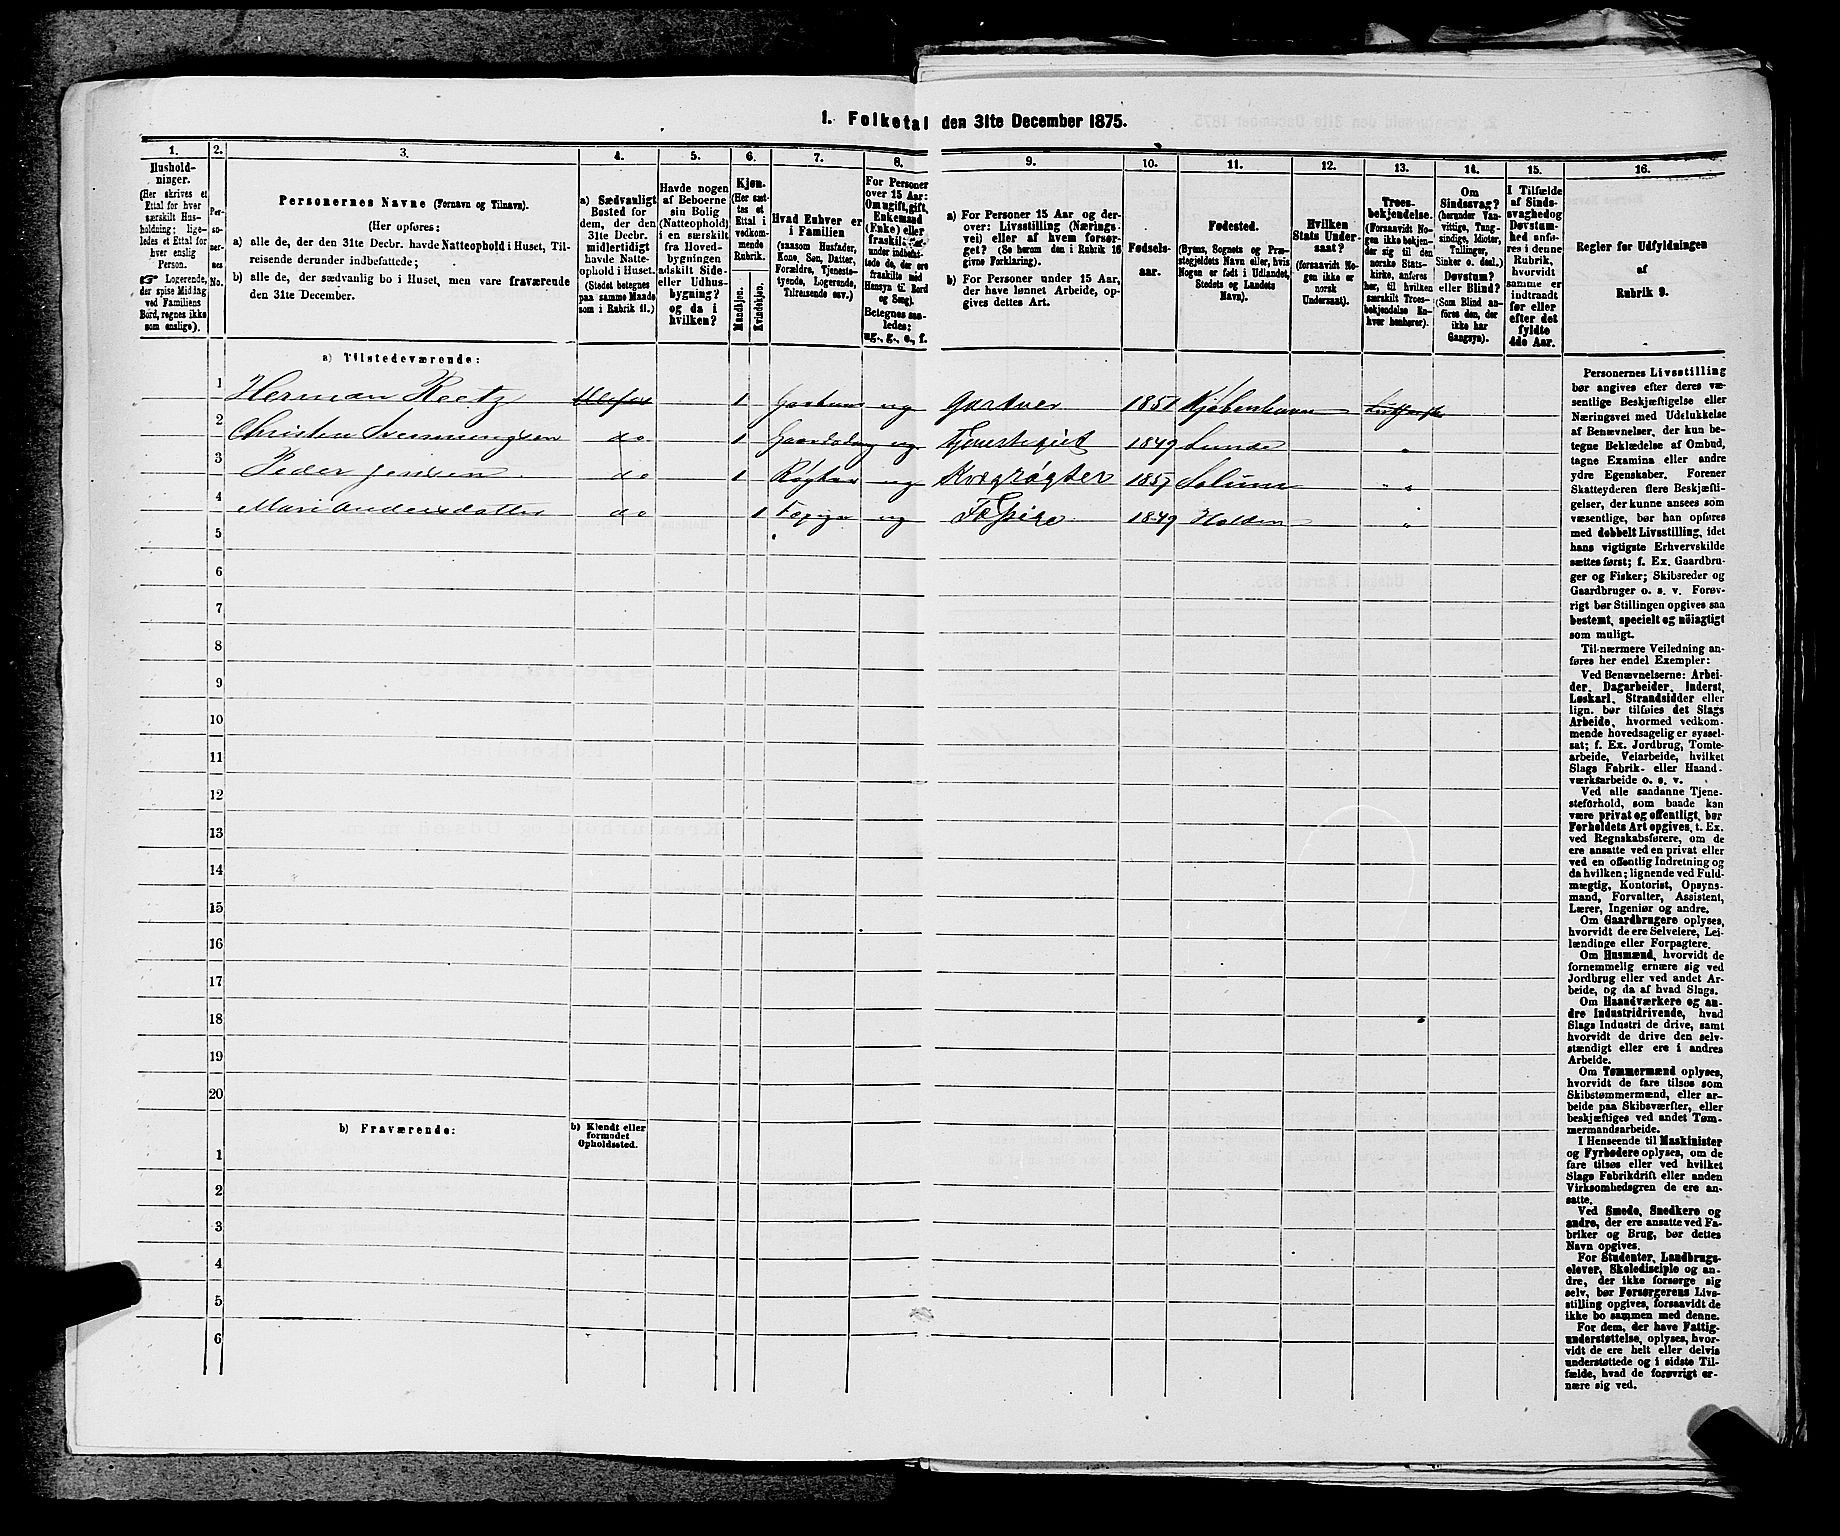 1. Folketal den 31te December 1875.
1. 2. 3. 4. 5. 6. 7. 8. 9. 10. 11. 12. 13. 14. 15. 16.
Hushold-
ninger.
(Her skrives et
Ettal for hver
særskilt Hus-
holdning; lige-
ledes et Ettal for
hver enslig
Person.
☞ Logerende,
der spise Middag
ved Familiens
Bord, regnes ikke
som enslige).
Per-
so-
ner-
nes
No.
Personernes Navne (Fornavn og Tilnavn).
(Her opføres:
a) alle de, der den 31te Decbr. havde Natteophold i Huset, Til-
reisende derunder indbefattede;
b) alle de, der sædvanlig bo i Huset, men vare fraværende
den 31te December.
a) Sædvanligt
Bosted for
dem, der den
31te Decbr.
midlertidigt
havde Natte-
ophold i Huset.
(Stedet betegnes
paa samme Maade
som i Rubrik 11.)
Havde nogen
af Beboerne
sin Bolig
(Natteophold)
i en særskilt
fra Hoved-
bygningen
adskilt Side-
eller Udhus-
bygning?
og da i
hvilken?
Kjøn.
(Her sæt-
tes et
Ettal i
vedkom-
mende
Rubrik.
Mandkjøn.
Kvindekjøn.
Hvad Enhver er
i Familien
(saasom Husfader,
Kone, Søn, Datter,
Forældre, Tjeneste-
tyende, Logerende,
Tilreisende osv.)
For Personer
over 15 Aar:
Om ugift, gift,
Enkemand
(Enke) eller
fraskilt
under indbefat-
tede de, der ere
fraskilte med
Hensyn til Bord
og Seng).
Betegnes saa-
ledes:
ug., g., e., f.
a) For Personer 15 Aar og der-
over: Livsstilling (Nærings-
vei) eller af hvem forsør-
get? (Se herom den i Rubrik 16
givne Forklaring).
b) For Personer under 15 Aar,
der have lønnet Arbeide, op-
gives dettes Art.
Fødsels-
aar.
Fødested.
(Byens, Sognets og Præ-
stegjeldets Navn eller, hvis
Nogen er født i Udlandet,
Stedets og Landets
Navn).
Hvilken
Stats Under-
saat?
(forsaavidt No-
gen ikke er
norsk
Undersaat).
Troes-
bekjendelse.
(Forsaavidt No-
gen ikke bekjen-
der sig til den
norske Stats-
kirke, anføres
her, til hvilken
særskilt Troes-
bekjendelse En-
hver henhører).
Om
Sindssvag?
(herunder Van-
vittige, Tung-
sindige, Idioter,
Tullinger,
Sinker o. desl.)
Døvstum?
eller Blind?
(Som Blind an-
føres den, der
ikke har
Gangsyn).
I Tilfælde
af Sinds-
svaghed og
Døvstum-
hed anfø-
res i denne
Rubrik,
hvorvidt
samme er
indtraadt
før eller
efter det
fyldte
4de Aar.
Regler for Udfyldningen
af
Rubrik 9.
a) Tilstedeværende:
1 Herman Reetz 1 ug Gartner 1851 Kjøbenhavn
2 Christen Svenningsen do 1 ug 1849 Lunde "
3 Peder Jensen do 1 Røgter ug Kvægrøgter 1857 Solum "
4 Mari Andersdatter do 1 ug 1849 Holden "
5
6
7
8
9
10
11
12
13
14
15
16
17
18
19
20
b) Fraværende:
b) Kjendt eller
formodet
Opholdssted.
1
2
3
4
5
6
Personernes Livsstilling
bør angives efter deres væ-
sentlige Beskjæftigelse eller
Næringsvei med Udelukkelse
af Benævnelser, der kun be-
tegne Beklædelse af Ombud,
tagne Examina eller andre
ydre Egenskaber. Forener
Skatteyderen flere Beskjæfti-
gelser, der kunne ansees som
væsentlige, bør han opføres
med dobbelt Livsstilling, idet
hans vigtigste Erhvervskilde
sættes først; f. Ex. Gaardbru-
ger og Fisker; Skibsreder og
Gaardbruger o. s. v. Forøv-
rigt bør Stillingen opgives saa
bestemt, specielt og nöiagtigt
som muligt.
Til nærmere Veiledning an-
føres her endel Exempler:
Ved Benævnelserne: Arbei-
der, Dagarbeider, Inderst,
Løskarl, Strandsidder eller
lign. bør tilføies det Slags
Arbeide, hvormed vedkom-
mende hovedsagelig er syssel-
sat; f. Ex. Jordbrug, Tomte-
arbeide, Veiarbeide, hvilket
Slags Fabrik- eller Haand-
værksarbeide o. s. v.
Ved alle saadanne Tjene-
steforhold, som baade kan
være privat og offentligt, bør
Forholdets Art opgives, t. Ex.
ved Regnskabsførere, om de
ere ansatte ved en privat eller
ved en offentlig Indretning og
da hvilken; lignende ved Fuld-
mægtig, Kontorist, Opsyns-
mand, Forvalter, Assistent,
Lærer, Ingeniør og andre.
Om Gaardbrugere oplyses,
hvorvidt de ere Selveiere, Lei-
lændinge eller Forpagtere.
Om Husmænd, hvorvidt de
fornemmelig ernære sig ved
Jordbrug eller ved andet Ar-
beide, og da af hvad Slags.
Om Haandværkere og an-
dre Industridrivende, hvad
Slags Industri de drive, samt
hvorvidt de drive den selv-
stændigt eller ere i andres
Arbeide.
Om Tømmermænd oplyses,
hvorvidt de fare tilsøs som
Skibstømmermænd, eller ar-
beide paa Skibsværfter, eller
beskjæftiges ved andet Tøm-
mermandsarbeide.
I Henseende til Maskinister
og Fyrbødere oplyses, om de
fare tilsøs eller ved hvilket
Slags Fabrikdrift eller anden
Virksomhedsgren de ere an-
satte.
Ved Smede, Snedkere og
andre, der ere ansatte ved Fa-
briker og Brug, bør dettes
Navn opgives.
For Studenter, Landbrugs-
elever, Skoledisciple og an-
dre, der ikke forsørge sig
selv, bør Forsørgerens Livs-
stilling opgives, forsaavidt de
ikke bo sammen med denne.
For dem, der have Fattig-
understøttelse, oplyses, hvor-
vidt de ere helt eller delvis
understøttede og i sidste Til-
fælde, hvad de forøvrigt er-
nære sig ved.